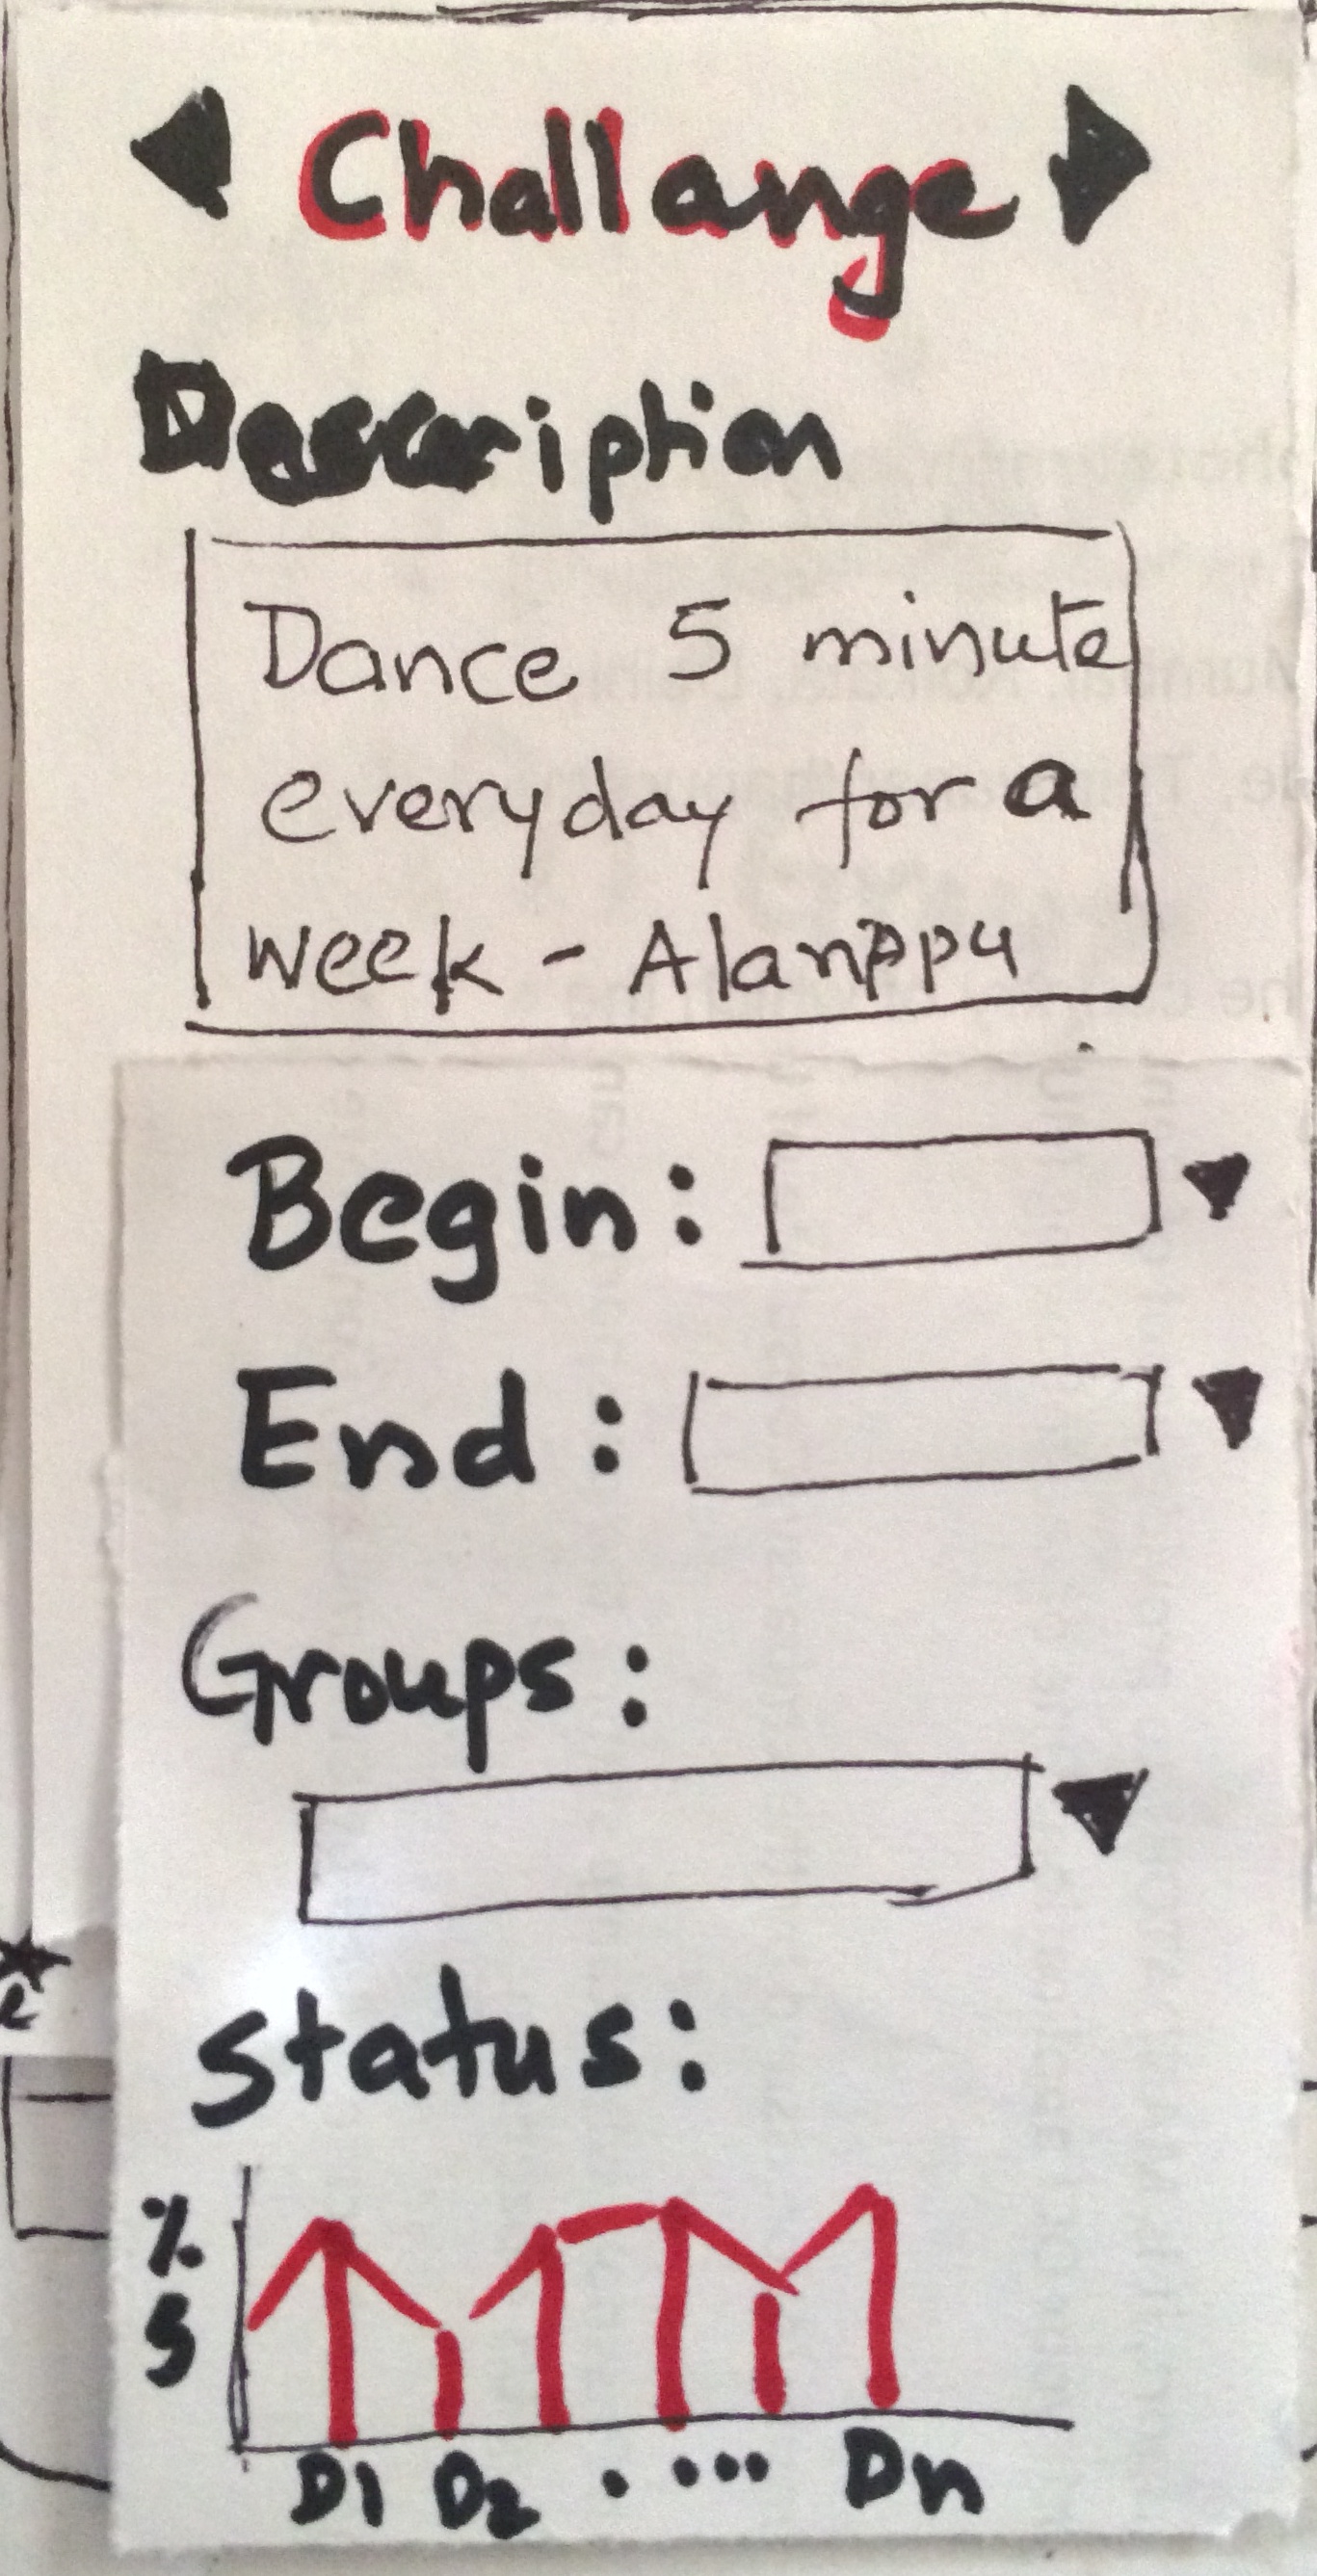 Challange
Description
Dance 5 minute
everyday for a
week - Alanppu
Begin:
End:
Groups:
Status:
%
S
D1 D2 . ... Dn